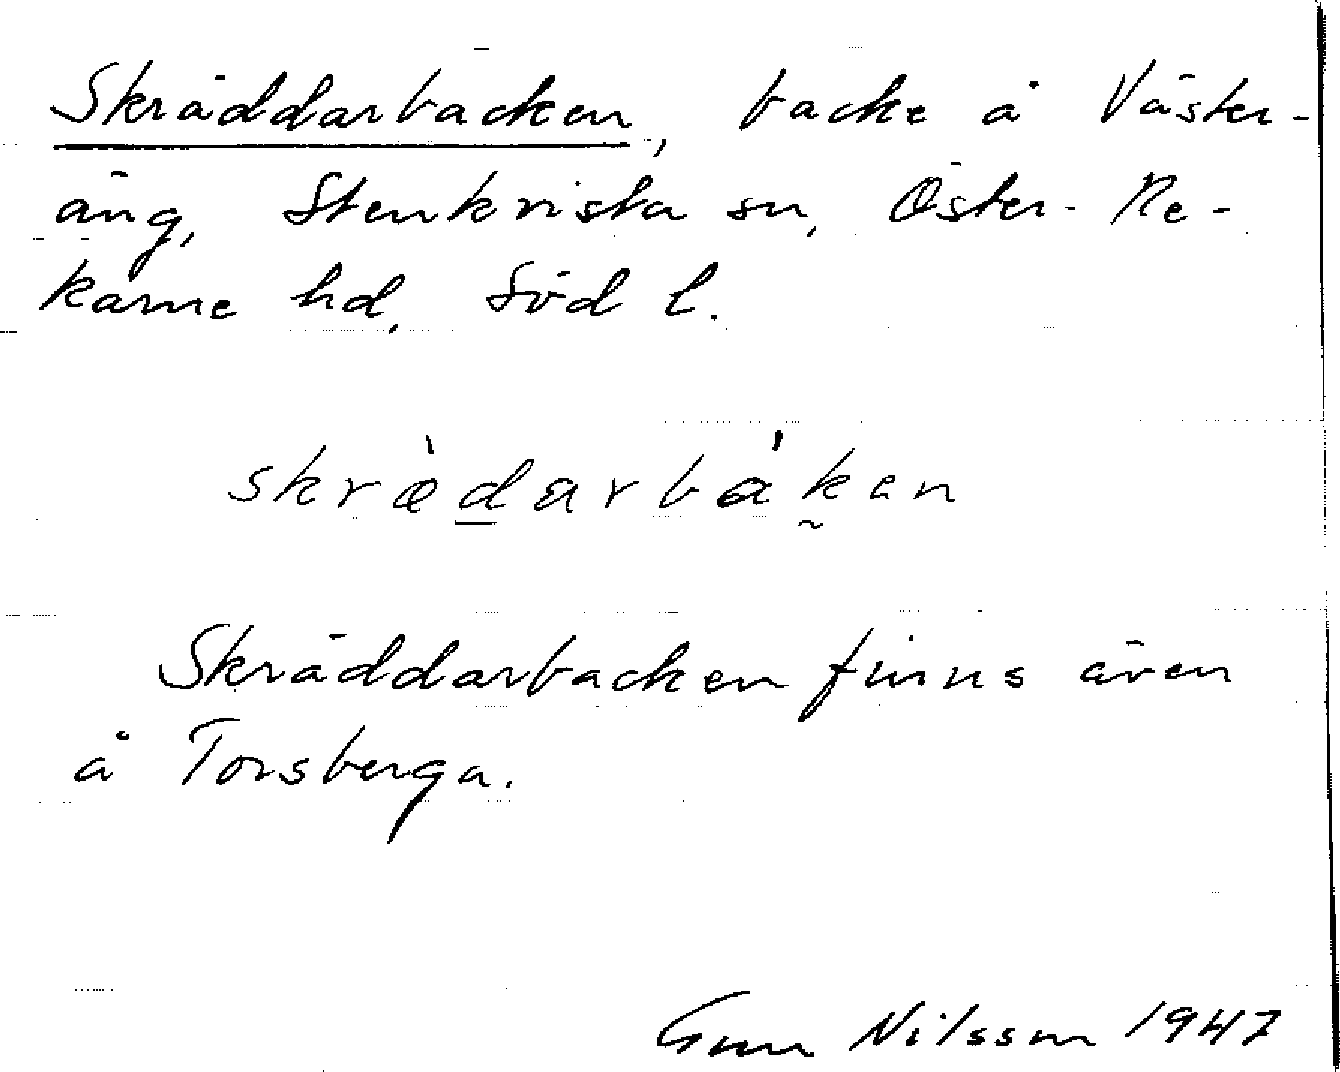 Skräddarbacken, backe å Väster-
äng, Stenkvista sn, Öster-Re-
karne hd, Söd l.
skræ̀darbákan
Skräddarbacken finns även
å Torsberga.
Gun Nilsson 1947